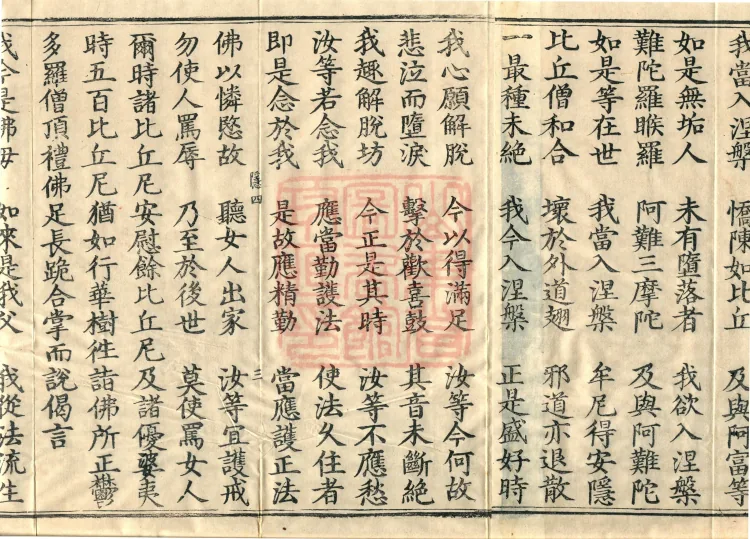 我當入涅槃 憍陳如比丘 及與阿富等
如是無垢人 未有墮落者 我欲入涅槃
難陀羅睺羅 阿難三摩陀 及與阿難陀
如是等在世 我當入涅槃 牟尼得安隱
比丘僧和合 壞於外道翅 邪道亦退散
一最種未絕 我今入涅槃 正是盛好時
我心願解脫 今以得滿足 汝等今何故
悲泣而墮淚 擊於歡喜鼓 其音未斷絕
我趣解脫坊 今正是其時 汝等不應愁
汝等若念我 應當勤護法 使法久住者
即是念於我 是故應精勤 當應護正法
隱四 三
佛以憐愍故 聽女人出家 汝等宜護戒
勿使人罵辱 乃至於後世 莫使罵女人
爾時諸比丘尼安慰餘比丘尼及諸優婆夷
時五百比丘尼猶如行華樹徃詣佛所正欝
多羅僧頂禮佛足長跪合掌而說偈言
我今是佛母 如來是我父 我從法流生